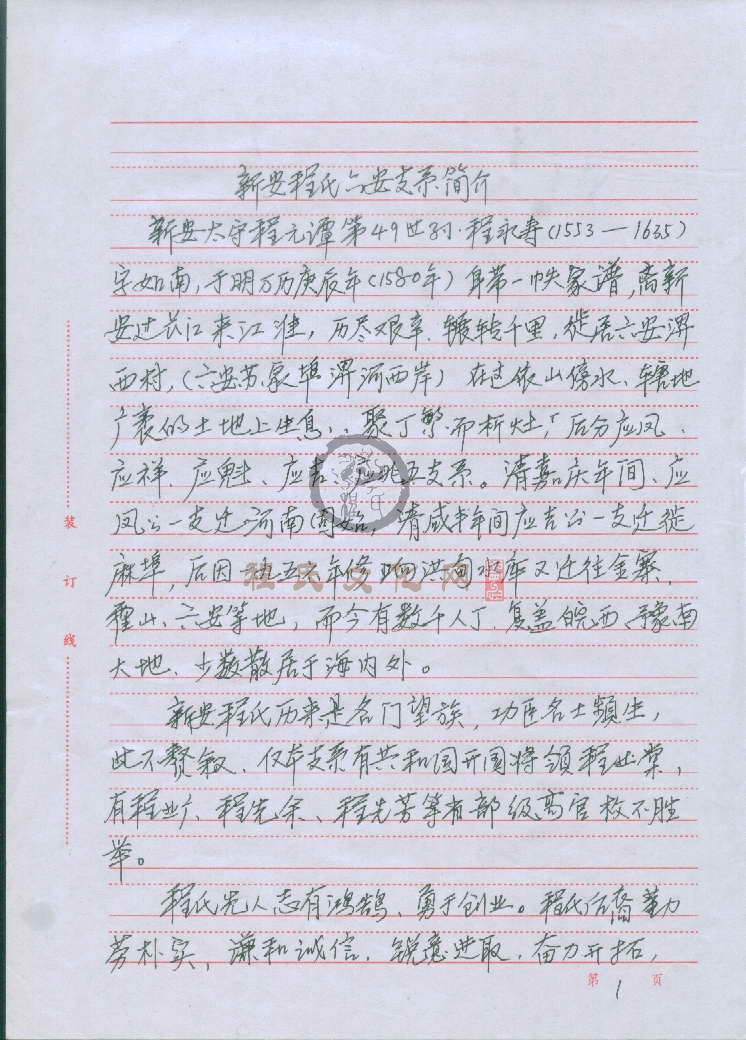 新安程氏六安支系简介
新安太守程元谭第49世孙·程永寿(1553—1635)
字如南,于明万历庚辰年(1580年)身带一帙家谱,离新
安过长江来江淮,历尽艰辛.辗转千里,徙居六安淠
西村,(六安苏家埠淠河西岸)在这依山傍水、辖地
广袤的土地上生息、、聚丁繁而析灶,后分应凤、
应祥、应魁、应吉、应兆五支系。清嘉庆年间、应
凤公一支迁河南固始,清咸丰年间应吉公一支迁徙
麻埠,后因一九五六年修响洪甸水库又迁往金寨,
霍山、六安等地,而今有数千人丁.复盖皖西、豫南
大地、少数散居于海内外。
新安程氏历来是名门望族,功臣名士频生,
此不赘叙、仅本支系有共和国开国将领程业棠,
有程业广、程先余、程先芳等省部级高官枚不胜
举。
程氏先人志有鸿鹄、勇于创业。程氏后裔勤
劳朴实、谦和诚信.锐意进取.奋力开拓,
装
订
线
第1页